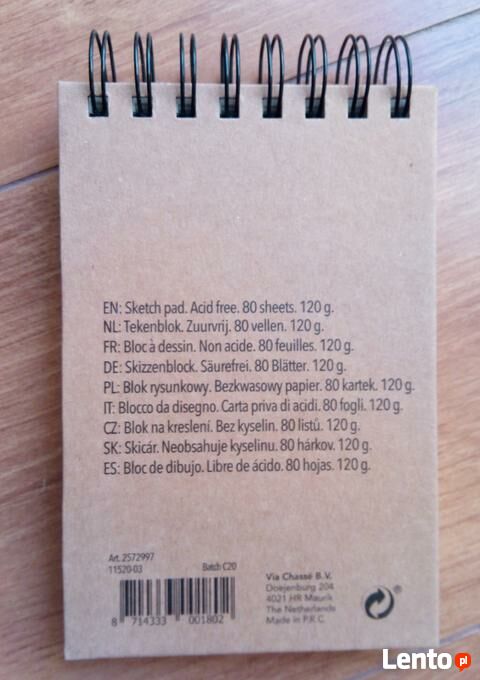 EN: Sketch pad. Acid free. 80 sheets. 120 g.
NL: Tekenblok. Zuurvrij. 80 vellen. 120 g.
FR: Bloc à dessin. Non acide. 80 feuilles. 120 g.
DE: Skizzenblock. Säurefrei. 80 Blätter. 120 g.
PL: Blok rysunkowy. Bezkwasowy papier. 80 kartek. 120 g.
IT: Blocco da disegno. Carta priva di acidi. 80 fogli. 120 g.
CZ: Blok na kreslení. Bez kyselin. 80 listů. 120 g.
SK: Skicár. Neobsahuje kyselinu. 80 hárkov. 120 g.
ES: Bloc de dibujo. Libre de ácido. 80 hojas. 120 g.
Art. 2572997
11520-03 Batch C20
8 714333 001802
Via Chassé B.V.
Doejenburg 204
4021 HR Maurik
The Netherlands
Made in P.R.C.
®
Lento.pl